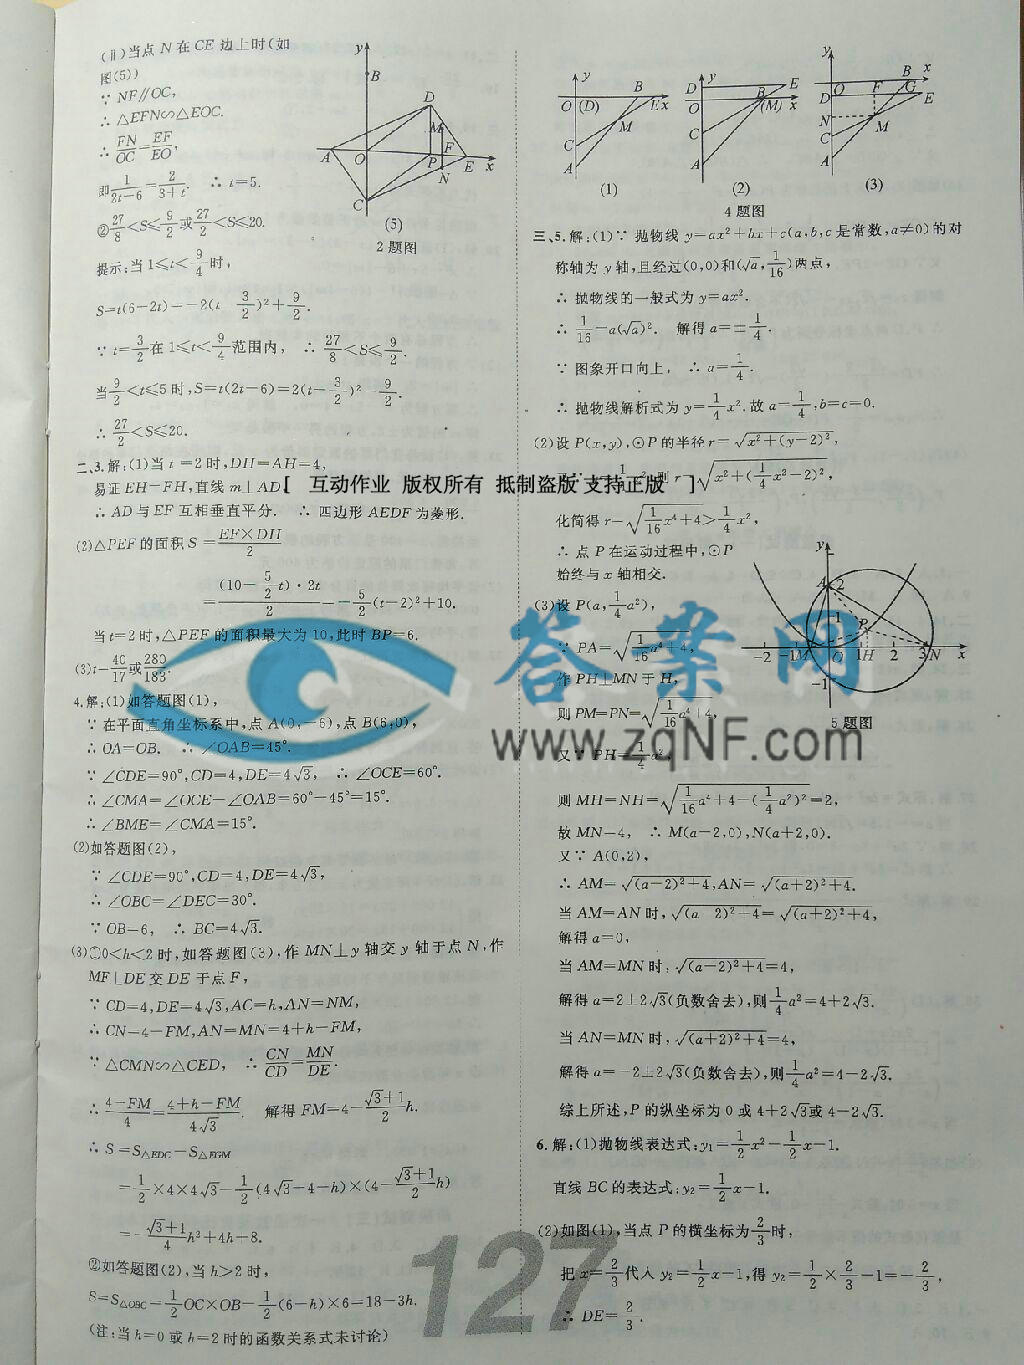 (ⅱ)当点 N 在 CE 边上时(如
图(5))
∵ NF∥OC,
∴ △EFN∽△EOC.
∴ FN/OC=EF/EO,
即1/(2t-6)=2/(3+t). ∴ t=5.
②27/8<S≤9/2或27/2<S≤20.
提示:当 1≤t<9/4时,
S=t(6-2t)=-2(t-3/2)²+9/2.
∵ t=3/2在 1≤t<9/4范围内, ∴ 27/8<S≤9/2.
当9/2<t≤5 时,S=t(2t-6)=2(t-3/2)²-9/2.
∴ 27/2<S≤20.
y
B
D
M
A
O
P
F
E
x
N
C
(5)
2 题图
二、3.解:(1)当 t=2 时,DH=AH=4,
易证EH=FH,直线 m⊥AD
∴ AD 与 EF 互相垂直平分. ∴ 四边形 AEDF 为菱形.
(2)△PEF 的面积 S=EF×DH/2
=(10-5/2 t)·2t/2=-5/2(t-2)²+10.
当 t=2 时,△PEF 的面积最大为 10,此时 BP=6.
(3)t=40/17或280/183.
4.解:(1)如答题图(1),
∵ 在平面直角坐标系中,点 A(0,-6),点 B(6,0),
∴ OA=OB. ∴ ∠OAB=45°.
∵ ∠CDE=90°,CD=4,DE=4√3, ∴ ∠OCE=60°.
∴ ∠CMA=∠OCE-∠OAB=60°-45°=15°.
∴ ∠BME=∠CMA=15°.
(2)如答题图(2),
∵ ∠CDE=90°,CD=4,DE=4√3,
∴ ∠OBC=∠DEC=30°.
∵ OB=6, ∴ BC=4√3.
(3)①0<h<2 时,如答题图(3),作 MN⊥y 轴交 y 轴于点 N,作
MF⊥DE 交 DE 于点 F,
∵ CD=4,DE=4√3,AC=h,AN=NM,
∴ CN=4-FM,AN=MN=4+h-FM,
∵ △CMN∽△CED, ∴ CN/CD=MN/DE.
∴ (4-FM)/4=(4+h-FM)/4√3. 解得 FM=4-(√3+1)/2 h.
∴ S=S△EDC-S△EGM
=1/2×4×4√3-1/2(4√3-4-h)×(4-(√3+1)/2 h)
=-(√3+1)/4 h²+4h+8.
②如答题图(2),当 h>2 时,
S=S△OBC=1/2 OC×OB=1/2(6-h)×6=18-3h.
(注:当 h=0 或 h=2 时的函数关系式未讨论)
y
O (D) B E x
C M
A
(1)
y
D E
O B (M) x
C
A
(2)
y
O F B x
D G E
N M
C
A
(3)
4 题图
三、5.解:(1)∵ 抛物线 y=ax²+bx+c(a,b,c 是常数,a≠0)的对
称轴为 y 轴,且经过(0,0)和(√a,1/16)两点,
∴ 抛物线的一般式为 y=ax².
∴ 1/16=a(√a)². 解得 a=±1/4.
∵ 图象开口向上, ∴ a=1/4.
∴ 抛物线解析式为 y=1/4x².故 a=1/4,b=c=0.
(2)设 P(x,y),⊙P 的半径 r=√(x²+(y-2)²),
则 r=√(x²+(1/4x²-2)²),
[ 互动作业 版权所有 抵制盗版 支持正版 ]
化简得 r=√(1/16x⁴+4)>1/4x²,
∴ 点 P 在运动过程中,⊙P
始终与 x 轴相交.
(3)设 P(a,1/4a²),
∵ PA=√(1/16a⁴+4),
作 PH⊥MN 于 H,
则 PM=PN=√(1/16a⁴+4),
又∵ PH=1/4a²,
y
A 2
1
P
-2 -1 M 1 H 2 3 N x
-1
5 题图
答案网
www.zqNF.com
则 MH=NH=√(1/16a⁴+4-(1/4a²)²)=2,
故 MN=4, ∴ M(a-2,0),N(a+2,0).
又∵ A(0,2),
∴ AM=√((a-2)²+4),AN=√((a+2)²+4).
当 AM=AN 时,√((a-2)²+4)=√((a+2)²+4),
解得 a=0,
当 AM=MN 时,√((a-2)²+4)=4,
解得 a=2±2√3(负数舍去),则1/4a²=4+2√3.
当 AN=MN 时,√((a+2)²+4)=4,
解得 a=-2±2√3(负数舍去),则1/4a²=4-2√3.
综上所述,P 的纵坐标为 0 或 4+2√3或 4-2√3.
6.解:(1)抛物线表达式:y₁=1/2x²-1/2x-1.
直线 BC 的表达式:y₂=1/2x-1.
(2)如图(1),当点 P 的横坐标为2/3时,
把 x=2/3代入 y₂=1/2x-1,得 y₂=1/2×2/3-1=-2/3,
∴ DE=2/3.
127